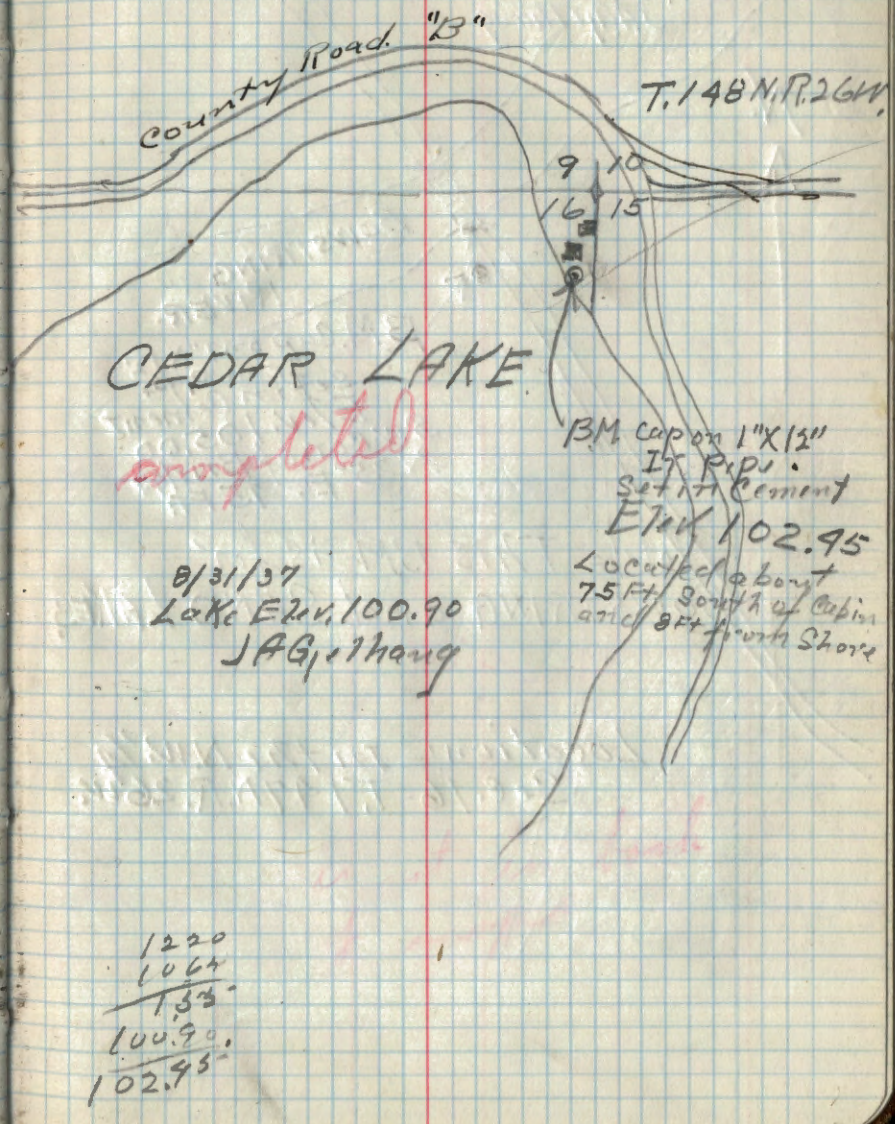 County Road "B"
T.148 N.R.26W.
9 10
16 15
CEDAR LAKE
completed
B.M. Cap on 1"X12"
Ir Pipe.
Set in Cement
Elev. 102.45
Located about
75 Ft South of Cabin
and 8 Ft from Shore
8/31/37
Lake Elev. 100.90
1220
1064
1.55
100.90
102.45